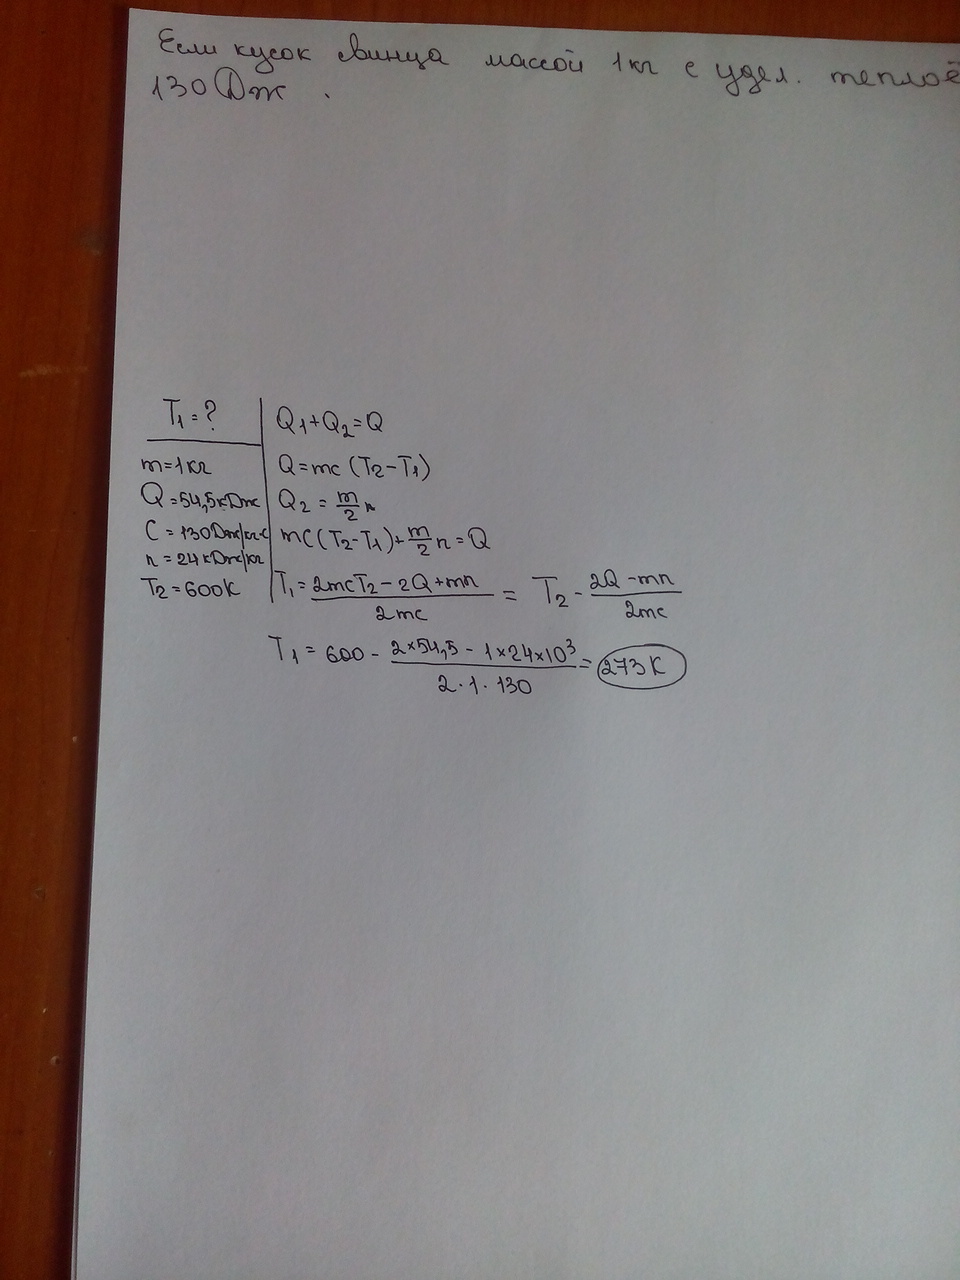 Если кусок свинца массой 1кг с удел. теплоё
130 Дж .
T₁ = ?
m = 1кг
Q = 54,5кДж
C = 130Дж/кг·c
n = 24кДж/кг
T₂ = 600K
Q₁ + Q₂ = Q
Q = mc (T₂ - T₁)
Q₂ = m/2 n
mC(T₂ - T₁) + m/2 n = Q
T₁ = (2mcT₂ - 2Q + mn)/(2mc) = T₂ - (2Q - mn)/(2mc)
T₁ = 600 - (2×54,5 - 1×24×10³)/(2·1·130) = 273K